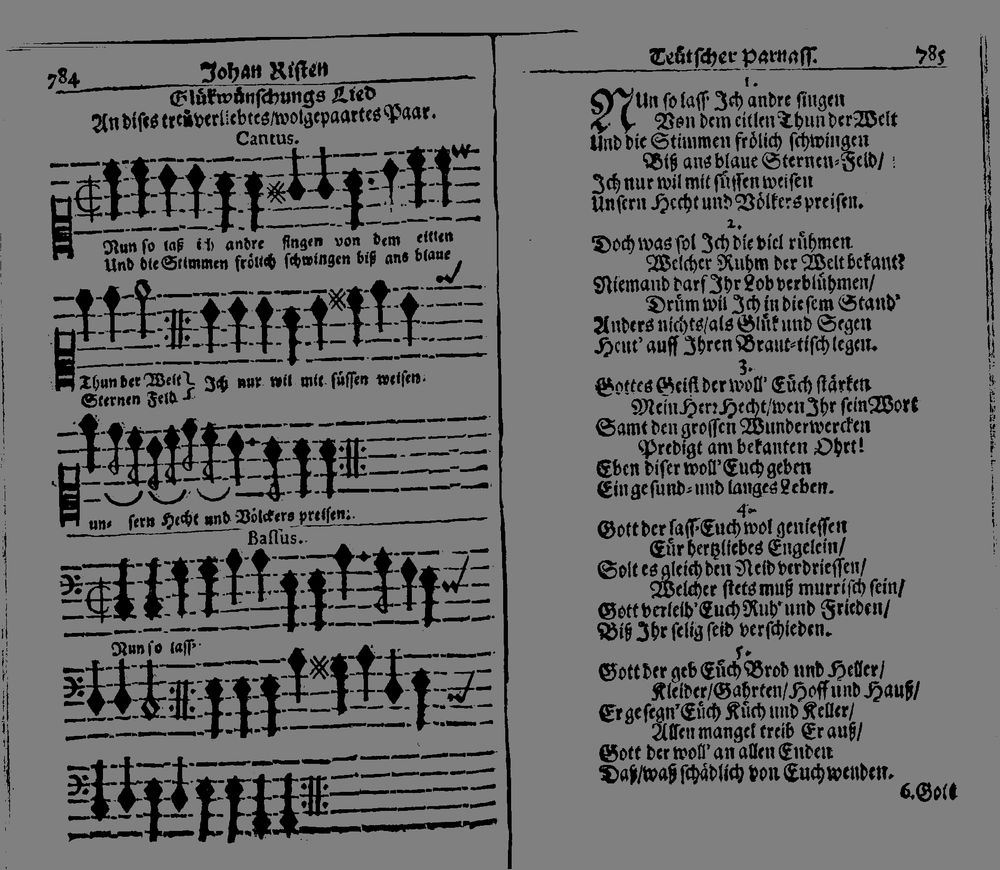 784 Johan Risten
Glükwünschungs Lied
An dises treüverliebtes/wolgepaartes Paar.
Cantus.
Nun so laß ich andre singen von dem eitlen
Und die Stimmen frölich schwingen biß ans blaue
Thun der Welt Ich nur wil mit süssen weisen.
Sternen Feld
un- sern Hecht und Völckers preisen.
Bassus.
Nun so lass
Teütscher Parnass. 785
1.
NUn so lass' Ich andre singen
Von dem eitlen Thun der Welt
Und die Stimmen frölich schwingen
Biß ans blaue Sternen-Feld/
Ich nur wil mit süssen weisen
Unsern Hecht und Völkers preisen.
2.
Doch was sol Ich die viel rühmen
Welcher Ruhm der Welt bekant?
Niemand darf Ihr Lob verblühmen/
Drüm wil Ich in diesem Stand'
Anders nichts/als Glük und Segen
Heut' auff Ihren Braut-tisch legen.
3.
Gottes Geist der woll' Eüch stärken
Mein Herr Hecht/wen Ihr sein Wort
Samt den grossen Wunderwercken
Predigt am bekanten Ohrt!
Eben diser woll' Euch geben
Ein gesund- und langes Leben.
4.
Gott der lass' Euch wol geniessen
Eür hertzliebes Engelein/
Solt es gleich den Neid verdriessen/
Welcher stets muß murrisch sein/
Gott verleih' Euch Ruh' und Frieden/
Biß Ihr selig seid verschieden.
5.
Gott der geb Eüch Brod und Heller/
Kleider/Gahrten/Hoff und Hauß/
Er gesegn' Eüch Küch und Keller/
Allen mangel treib Er auß/
Gott der woll' an allen Enden
Daß/waß schädlich von Euch wenden.
6. Gott